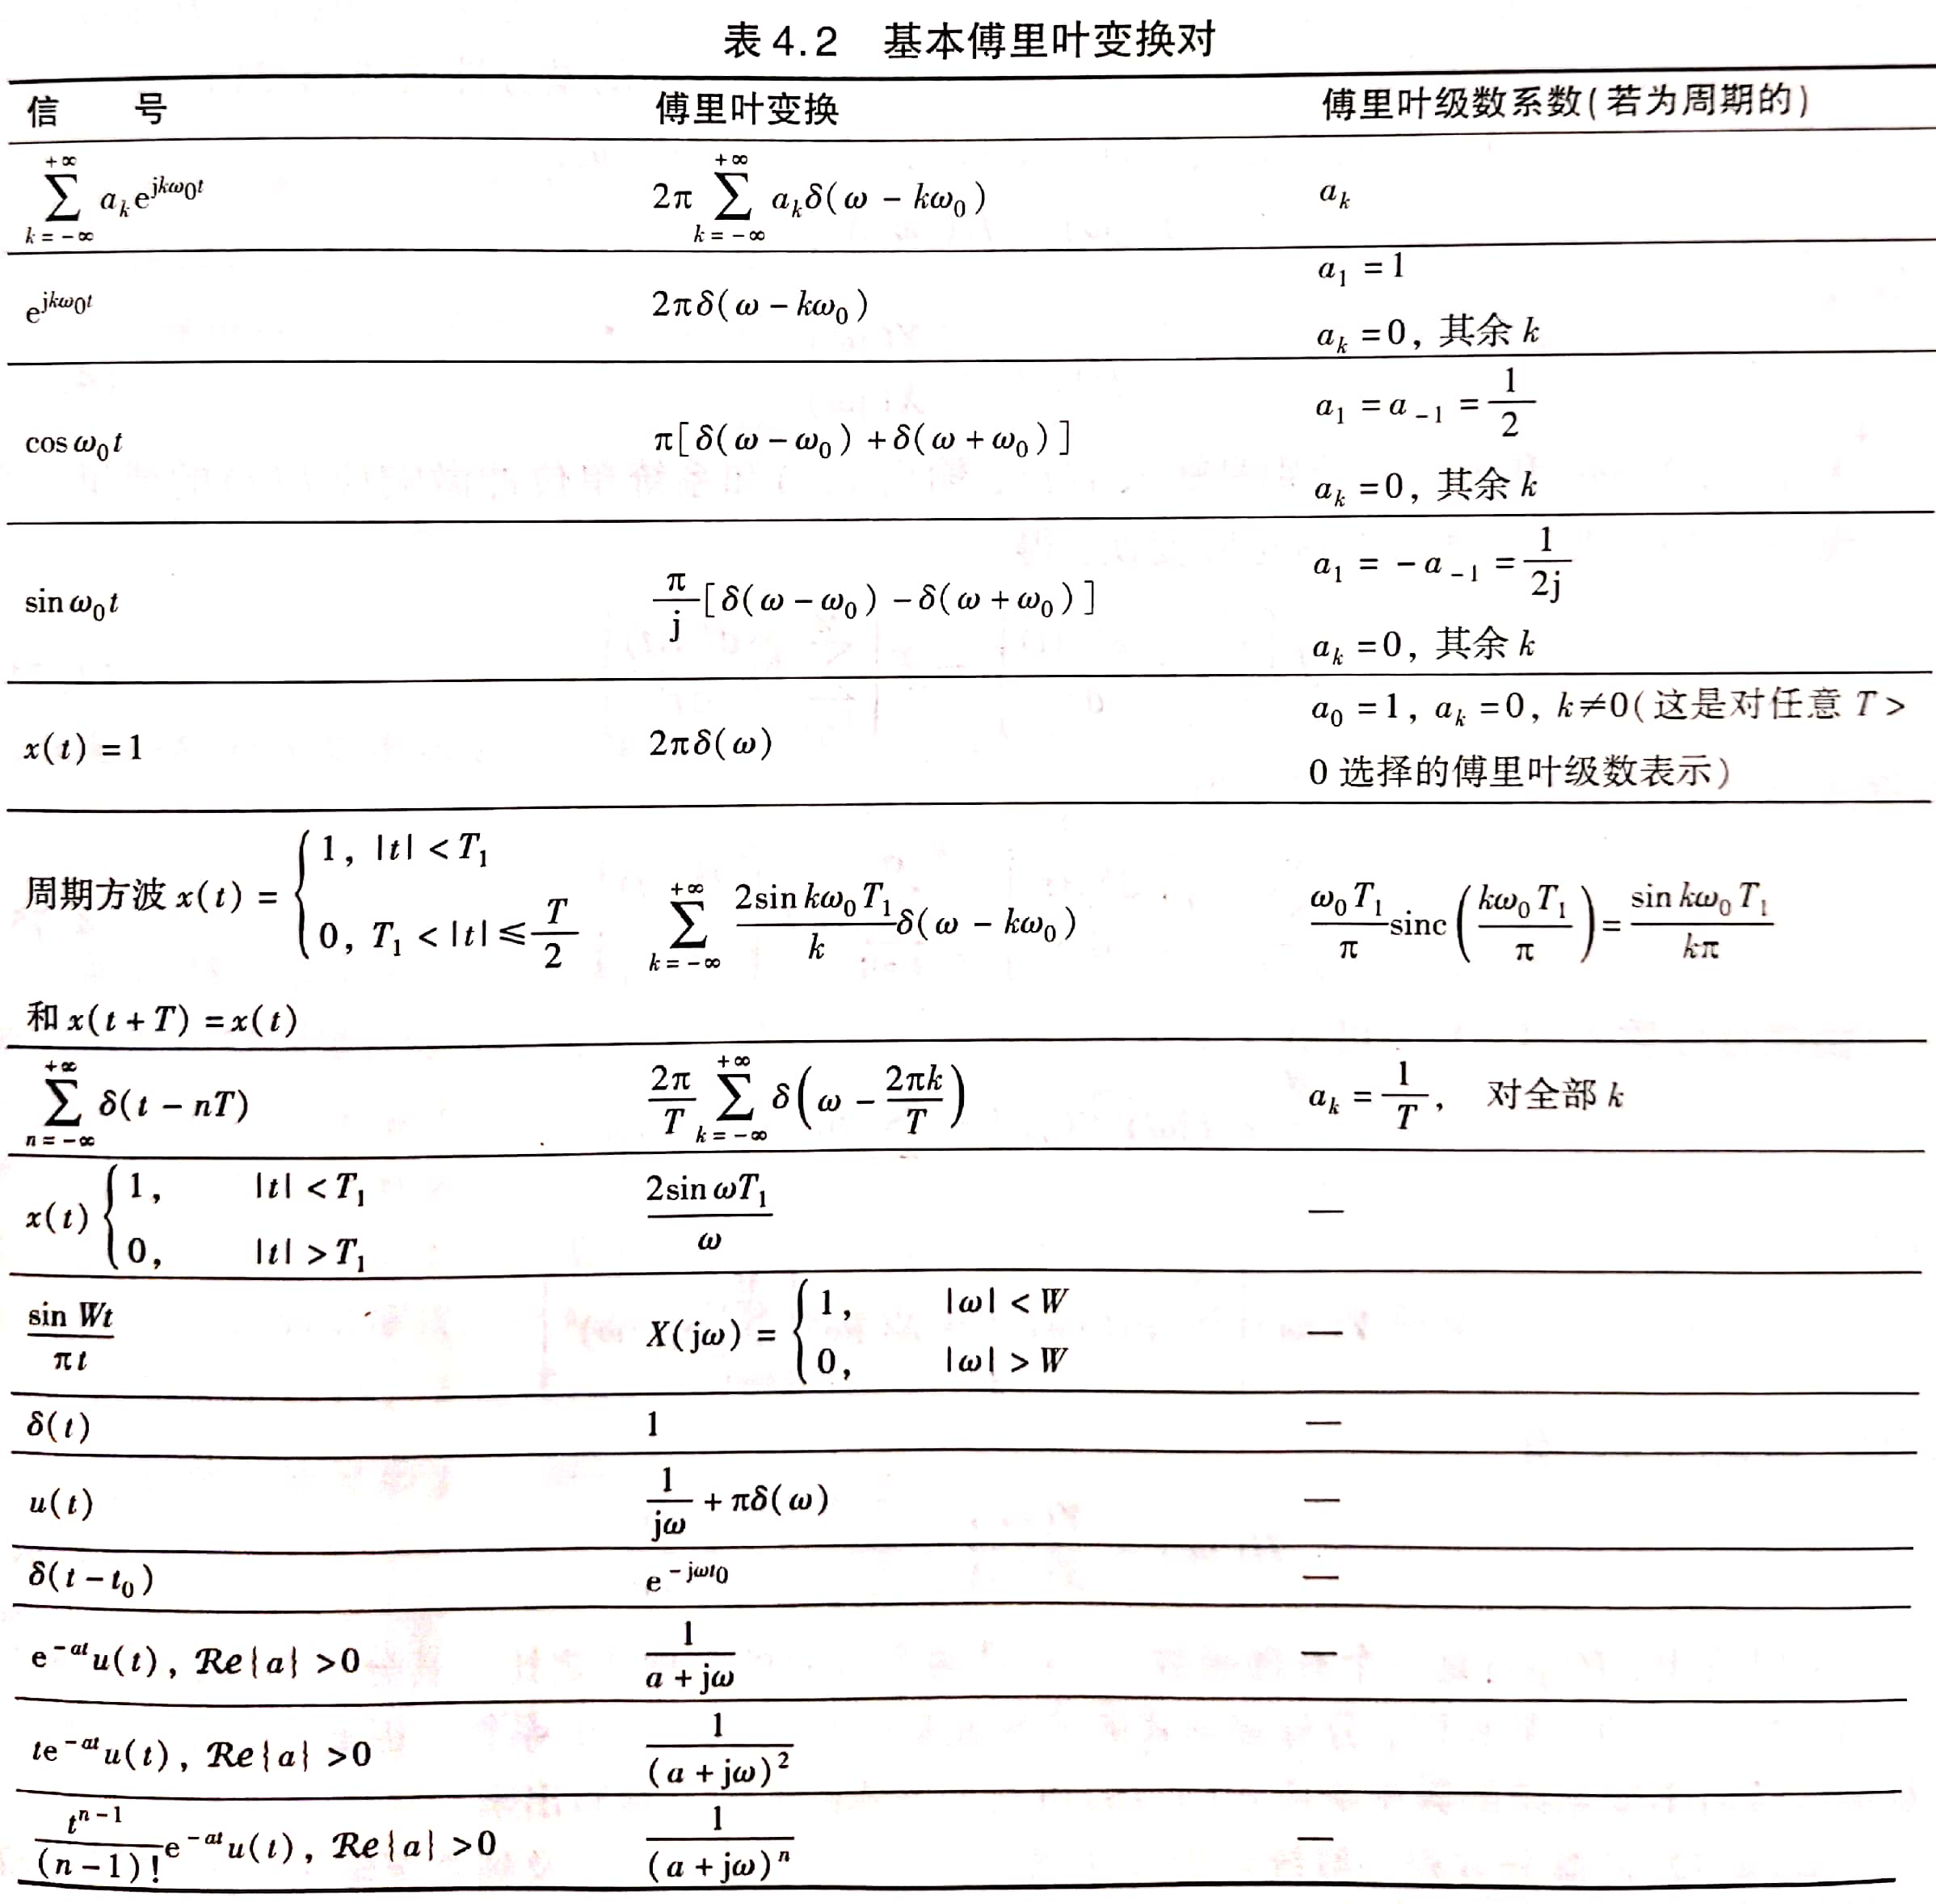 表 4.2 基本傅里叶变换对
信 号 傅里叶变换 傅里叶级数系数(若为周期的)
$\sum_{k=-\infty}^{+\infty} a_k e^{jk\omega_0 t}$ $2\pi \sum_{k=-\infty}^{+\infty} a_k \delta(\omega - k\omega_0)$ $a_k$
$e^{jk\omega_0 t}$ $2\pi\delta(\omega - k\omega_0)$ $a_1 = 1$
$a_k = 0$, 其余 $k$
$\cos\omega_0 t$ $\pi[\delta(\omega - \omega_0) + \delta(\omega + \omega_0)]$ $a_1 = a_{-1} = \frac{1}{2}$
$a_k = 0$, 其余 $k$
$\sin\omega_0 t$ $\frac{\pi}{j}[\delta(\omega - \omega_0) - \delta(\omega + \omega_0)]$ $a_1 = -a_{-1} = \frac{1}{2j}$
$a_k = 0$, 其余 $k$
$x(t) = 1$ $2\pi\delta(\omega)$ $a_0 = 1$, $a_k = 0$, $k \neq 0$(这是对任意 $T >$
0 选择的傅里叶级数表示)
周期方波 $x(t) = \begin{cases} 1, & |t| < T_1 \\ 0, & T_1 < |t| \leq \frac{T}{2} \end{cases}$ $\sum_{k=-\infty}^{+\infty} \frac{2\sin k\omega_0 T_1}{k}\delta(\omega - k\omega_0)$ $\frac{\omega_0 T_1}{\pi}\text{sinc}\left(\frac{k\omega_0 T_1}{\pi}\right) = \frac{\sin k\omega_0 T_1}{k\pi}$
和 $x(t + T) = x(t)$
$\sum_{n=-\infty}^{+\infty} \delta(t - nT)$ $\frac{2\pi}{T}\sum_{k=-\infty}^{+\infty} \delta\left(\omega - \frac{2\pi k}{T}\right)$ $a_k = \frac{1}{T}$, 对全部 $k$
$x(t) \begin{cases} 1, & |t| < T_1 \\ 0, & |t| > T_1 \end{cases}$ $\frac{2\sin\omega T_1}{\omega}$ —
$\frac{\sin Wt}{\pi t}$ $X(j\omega) = \begin{cases} 1, & |\omega| < W \\ 0, & |\omega| > W \end{cases}$ —
$\delta(t)$ 1 —
$u(t)$ $\frac{1}{j\omega} + \pi\delta(\omega)$ —
$\delta(t - t_0)$ $e^{-j\omega t_0}$ —
$e^{-at}u(t)$, $\mathcal{R}e\{a\} > 0$ $\frac{1}{a + j\omega}$ —
$te^{-at}u(t)$, $\mathcal{R}e\{a\} > 0$ $\frac{1}{(a + j\omega)^2}$
$\frac{t^{n-1}}{(n-1)!}e^{-at}u(t)$, $\mathcal{R}e\{a\} > 0$ $\frac{1}{(a + j\omega)^n}$ —